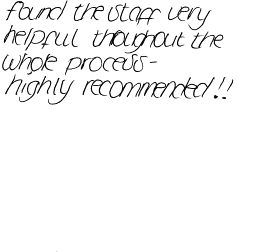 found the staff very
helpful thoughout the
whole process-
highly recommended!!